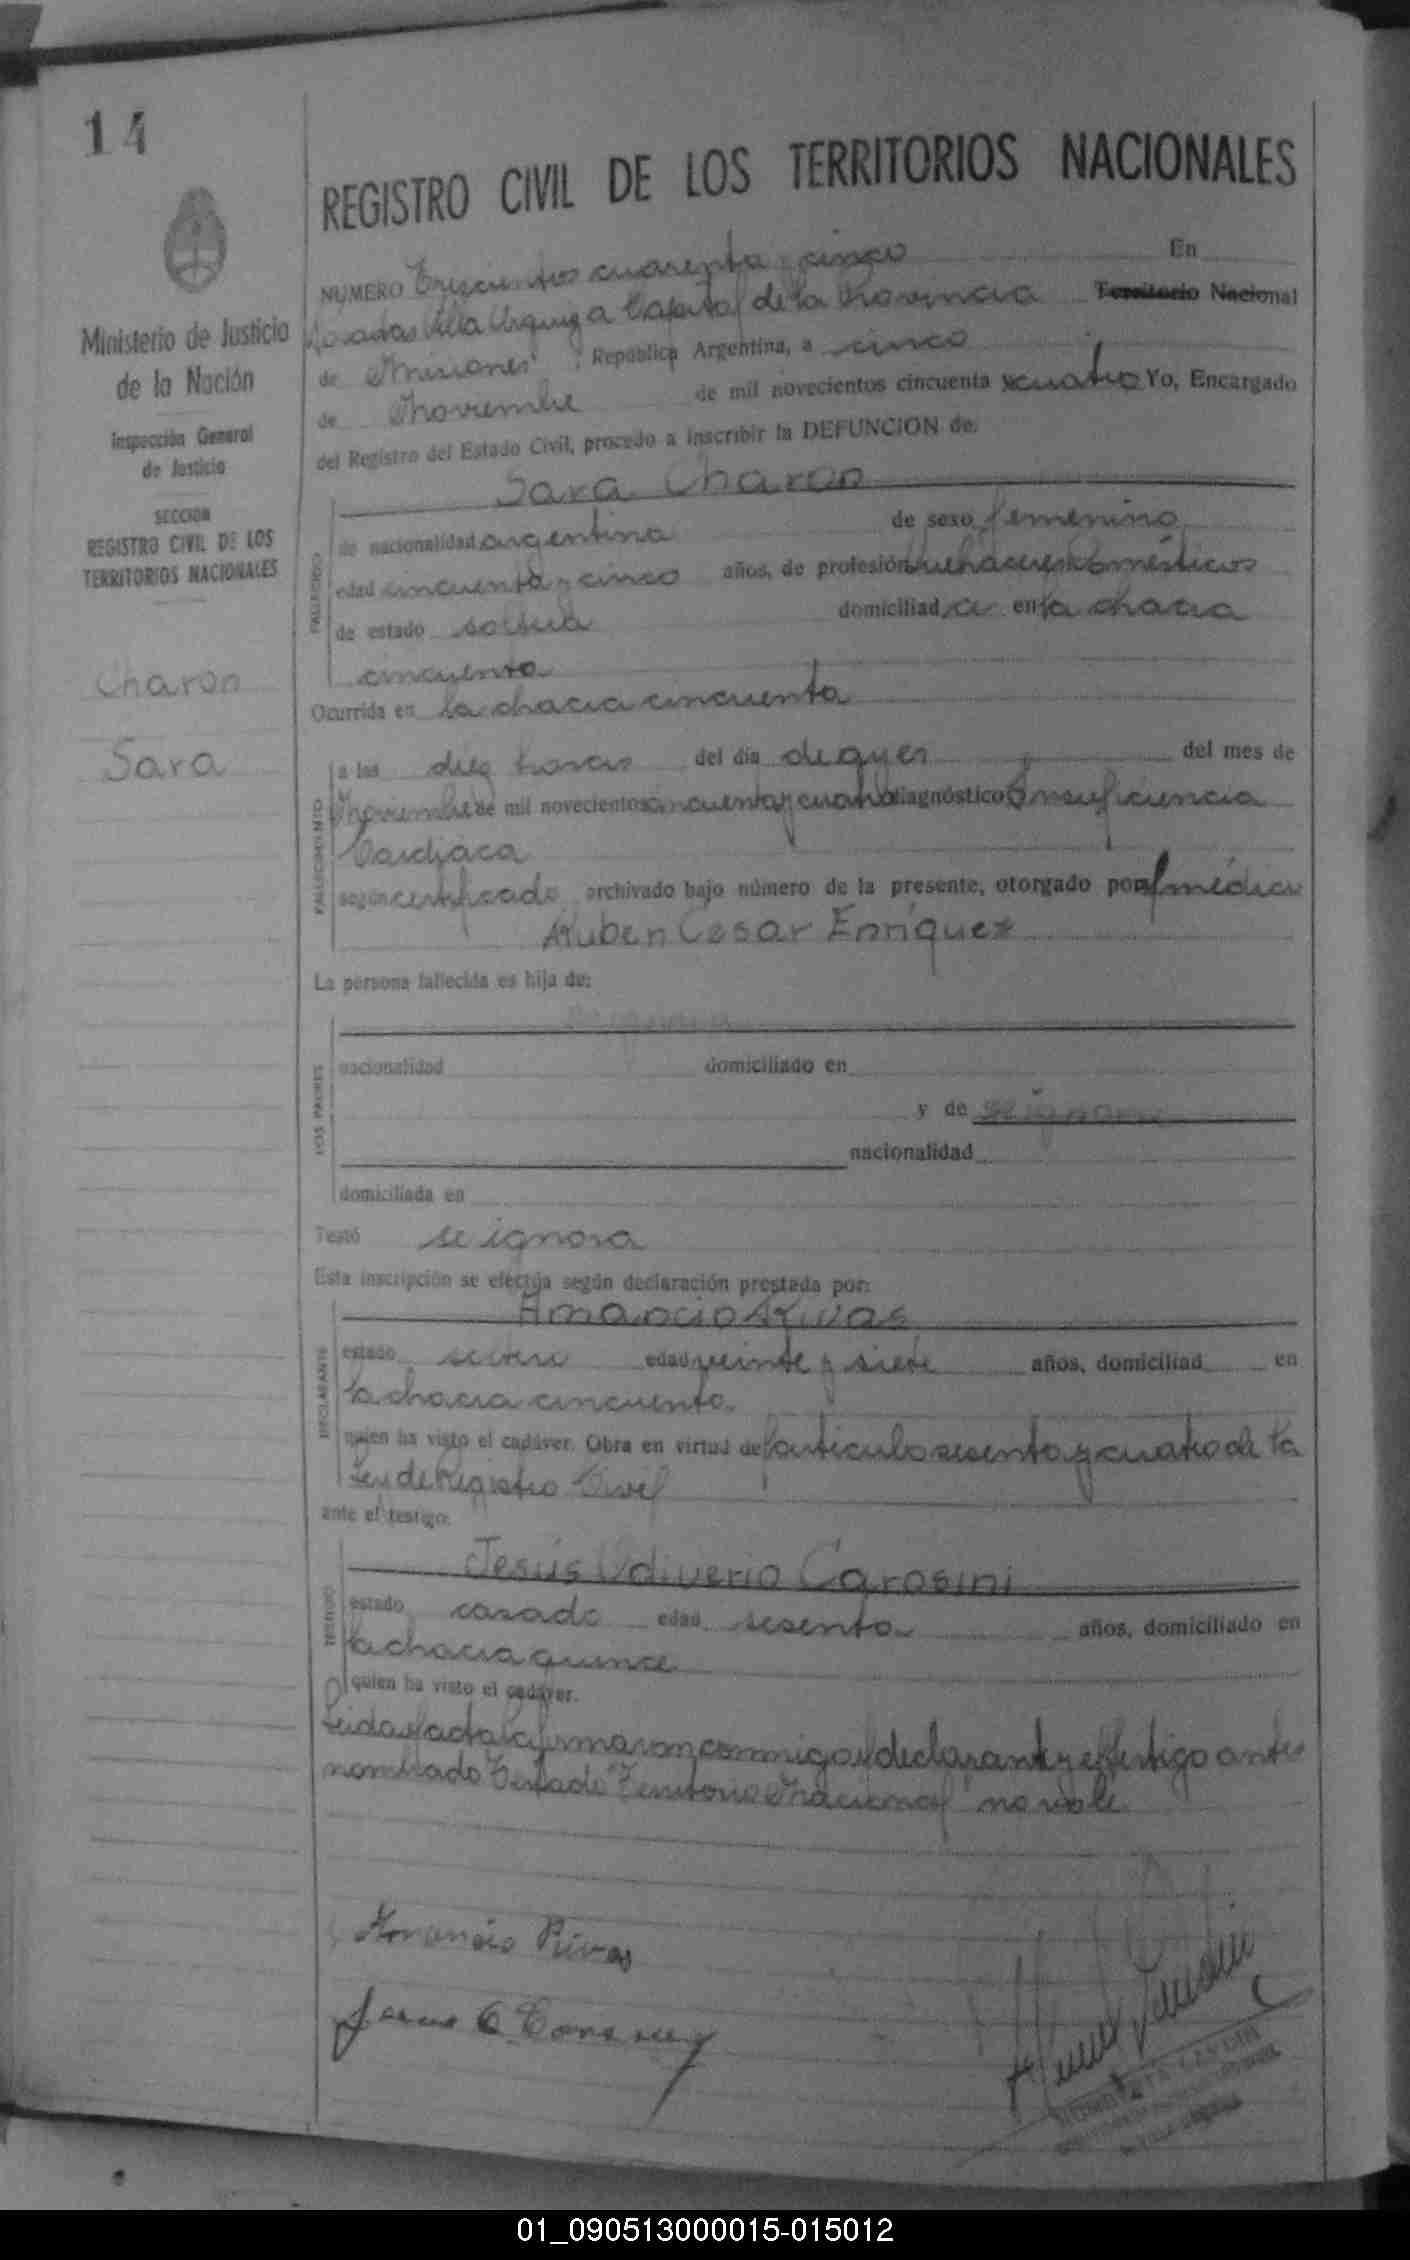 14
REGISTRO CIVIL DE LOS TERRITORIOS NACIONALES
Ministerio de Justicia
de la Nación
Inspección General
de Justicia
SECCION
REGISTRO CIVIL DE LOS
TERRITORIOS NACIONALES
Charon
Sara
NUMERO Trescientos cuarenta y cinco En
Posadas Villa Urquiza Capital de la Provincia Territorio Nacional
de Misiones, República Argentina, a cinco
de Noviembre de mil novecientos cincuenta y cuatro Yo, Encargado
del Registro del Estado Civil, procedo a inscribir la DEFUNCION de:
Sara Charon
FALLECIDO
de nacionalidad argentina de sexo femenino
edad cincuenta y cinco años, de profesión quehaceres domésticos
de estado soltera domiciliada en la chacra
cincuenta
Ocurrida en la chacra cincuenta
FALLECIMIENTO
a las diez horas del día de ayer del mes de
Noviembre de mil novecientos cincuenta y cuatro diagnóstico Insuficiencia
Cardíaca
según certificado archivado bajo número de la presente, otorgado por el médico
Ruben Cesar Enriquez
La persona fallecida es hija de:
LOS PADRES
se ignora
nacionalidad domiciliado en
y de se ignora
nacionalidad
domiciliada en
Testó se ignora
Esta inscripción se efectúa según declaración prestada por:
Amancio Rivas
DECLARANTE
estado soltero edad veinte y siete años, domiciliad en
la chacra cincuenta.
quien ha visto el cadáver. Obra en virtud del artículo sesenta y cuatro de la
Ley de Registro Civil
ante el testigo:
Jesús Odiverio Carosini
TESTIGO
estado casado edad sesenta años, domiciliado en
la chacra quince
quien ha visto el cadáver.
Leida el acta la firmaron conmigo el declarante y el testigo antes
nombrado Testado "Territorio Nacional" no vale.
Amancio Rivas
01_090513000015-015012